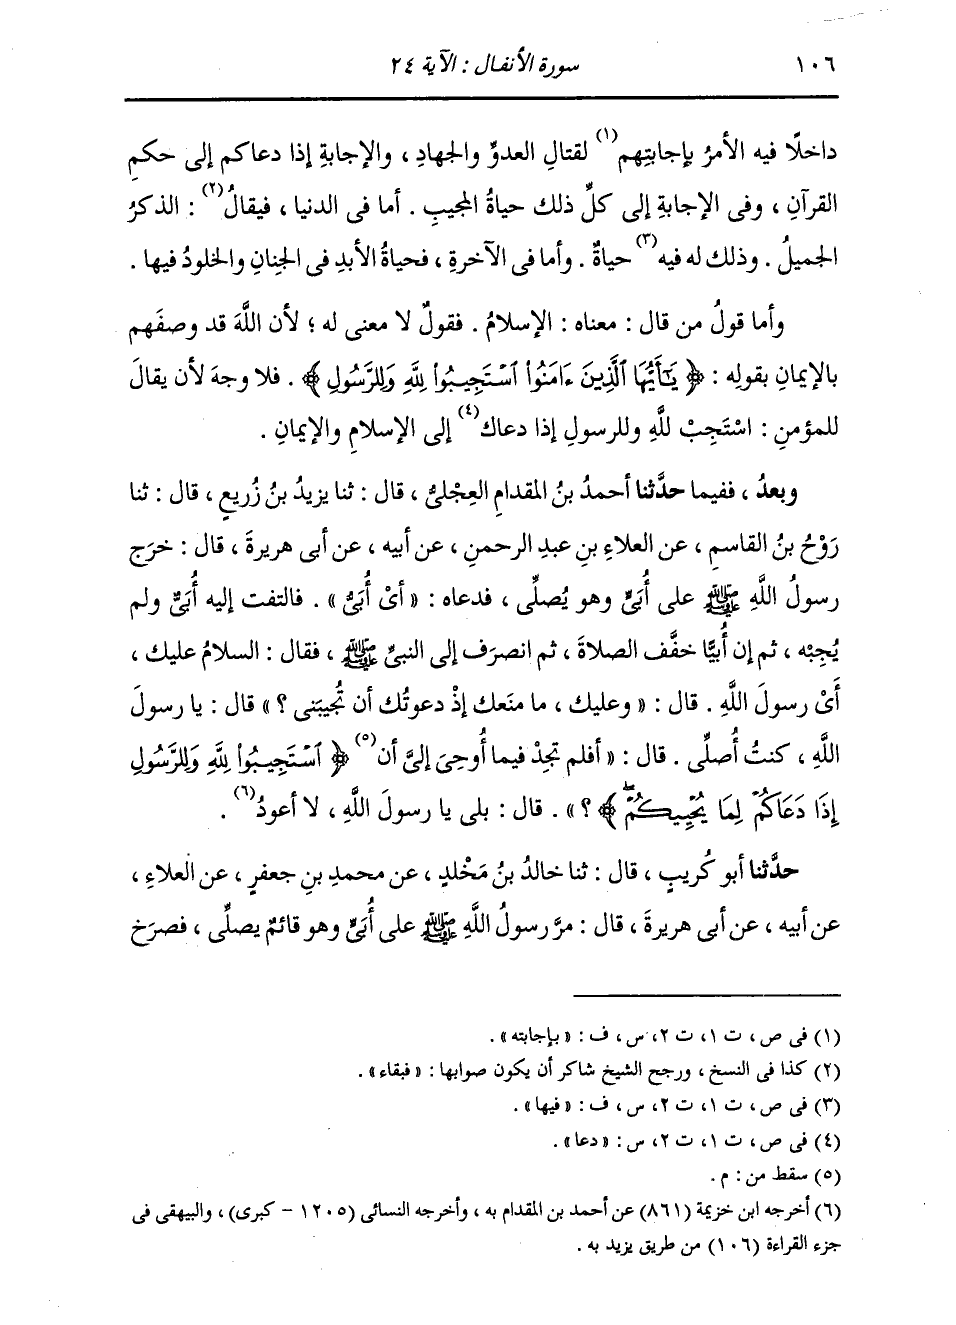 ١٠٦ سورة الأنفال : الآية ٢٤
داخلًا فيه الأمرُ بإجابتِهم(١) لقتالِ العدوِّ والجهادِ ، والإجابةِ إذا دعاكم إلى حكمِ
القرآنِ ، وفى الإجابةِ إلى كلِّ ذلك حياةُ المجيبِ . أما فى الدنيا ، فيقالُ(٢) : الذكرُ
الجميلُ . وذلك له فيه(٣) حياةٌ . وأما فى الآخرةِ ، فحياةُ الأبدِ فى الجنانِ والخلودُ فيها .
وأما قولُ من قال : معناه : الإسلامُ . فقولٌ لا معنى له ؛ لأن اللَّهَ قد وصفَهم
بالإيمانِ بقولِه : ﴿ يَٰٓأَيُّهَا ٱلَّذِينَ ءَامَنُوا۟ ٱسْتَجِيبُوا۟ لِلَّهِ وَلِلرَّسُولِ ﴾ . فلا وجهَ لأن يقالَ
للمؤمنِ : اسْتَجِبْ للَّهِ وللرسولِ إذا دعاك(٤) إلى الإسلامِ والإيمانِ .
وبعدُ ، ففيما حدَّثنا أحمدُ بنُ المقدامِ العِجْلىُّ ، قال : ثنا يزيدُ بنُ زُريعٍ ، قال : ثنا
رَوْحُ بنُ القاسمِ ، عن العلاءِ بنِ عبدِ الرحمنِ ، عن أبيه ، عن أبى هريرةَ ، قال : خرَج
رسولُ اللَّهِ ﷺ على أُبَىٍّ وهو يُصلِّى ، فدعاه : « أىْ أُبَىُّ » . فالتفت إليه أُبَىٌّ ولم
يُجِبْه ، ثم إن أُبيًّا خفَّف الصلاةَ ، ثم انصرَف إلى النبىِّ ﷺ ، فقال : السلامُ عليك ،
أَىْ رسولَ اللَّهِ . قال : « وعليك ، ما منَعك إذْ دعوتُك أن تُجيبَنى ؟ » قال : يا رسولَ
اللَّهِ ، كنتُ أُصلِّى . قال : « أفلم تجِدْ فيما أُوحِىَ إلىَّ أن(٥) ﴿ ٱسْتَجِيبُوا۟ لِلَّهِ وَلِلرَّسُولِ
إِذَا دَعَاكُمْ لِمَا يُحْيِيكُمْ ۖ ﴾ ؟ » . قال : بلى يا رسولَ اللَّهِ ، لا أعودُ(٦) .
حدَّثنا أبو كُريبٍ ، قال : ثنا خالدُ بنُ مَخْلدٍ ، عن محمدِ بنِ جعفرٍ ، عن العلاءِ ،
عن أبيه ، عن أبى هريرةَ ، قال : مرَّ رسولُ اللَّهِ ﷺ على أُبَىٍّ وهو قائمٌ يصلِّى ، فصرَخ
(١) فى ص ، ت ١، ت ٢، س ، ف : « بإجابته » .
(٢) كذا فى النسخ ، ورجح الشيخ شاكر أن يكون صوابها : « فبقاء » .
(٣) فى ص ، ت ١، ت ٢، س ، ف : « فيها » .
(٤) فى ص ، ت ١، ت ٢، س : « دعا » .
(٥) سقط من : م .
(٦) أخرجه ابن خزيمة (٨٦١) عن أحمد بن المقدام به ، وأخرجه النسائى (١٢٠٥ - كبرى) ، والبيهقى فى
جزء القراءة (١٠٦) من طريق يزيد به .